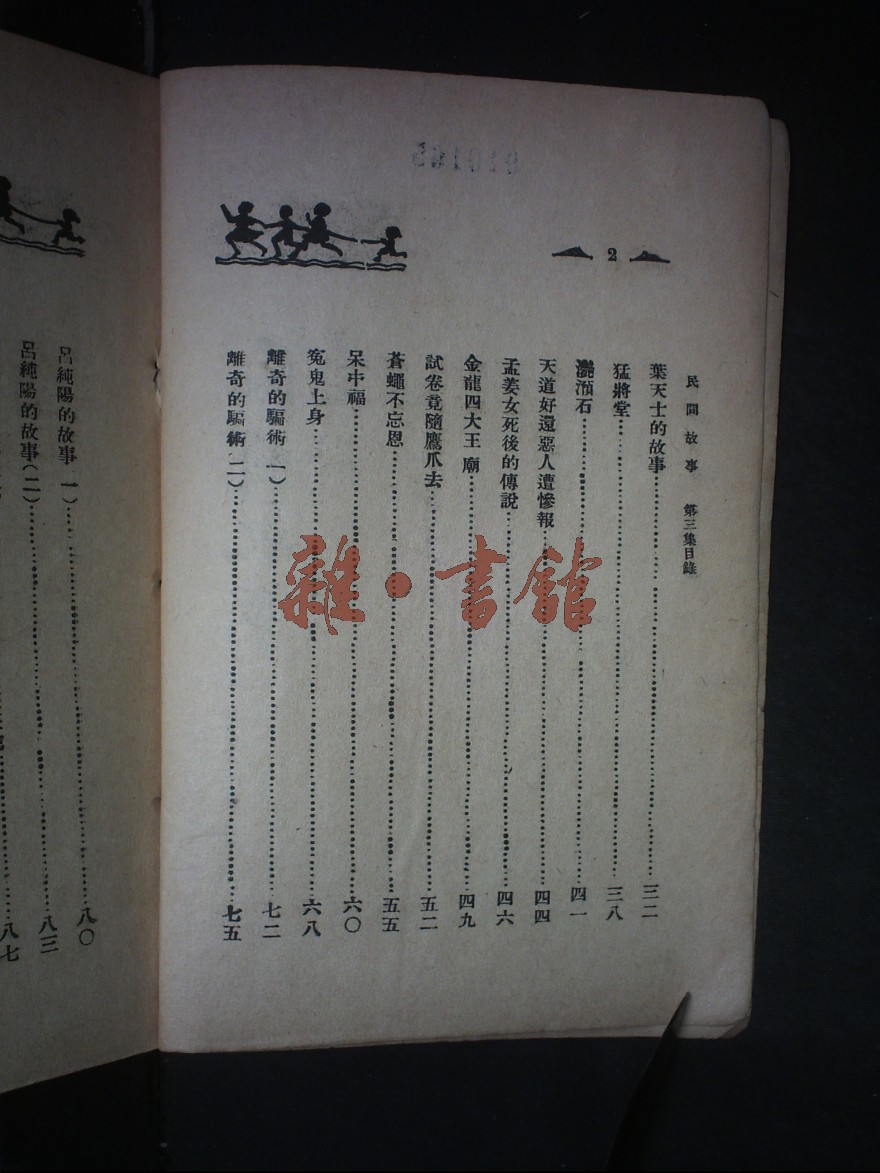 910165
2
民間故事 第三集目錄
葉天士的故事……三二
猛將堂……三八
灩澦石……四一
天道好還惡人遭慘報……四四
孟姜女死後的傳說……四六
金龍四大王廟……四九
試卷竟隨鷹爪去……五二
蒼蠅不忘恩……五五
呆中福……六〇
冤鬼上身……六八
離奇的騙術(一)……七二
離奇的騙術(二)……七五
呂純陽的故事(一)……八〇
呂純陽的故事(二)……八三
八七
雜·書館